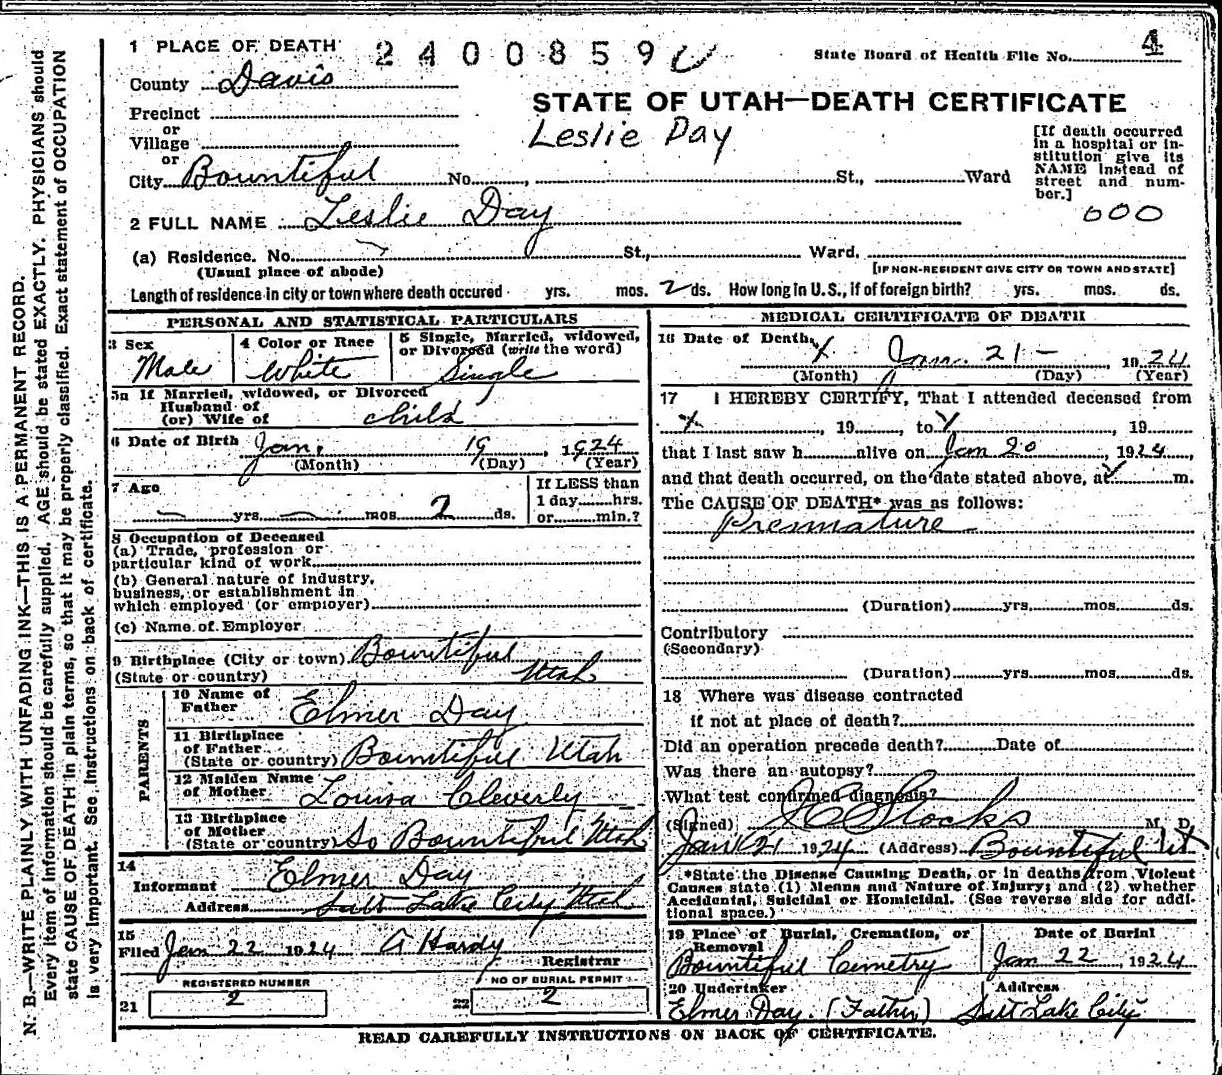 1 PLACE OF DEATH 2400859
State Board of Health File No. 4
County Davis
STATE OF UTAH—DEATH CERTIFICATE
Precinct
or
Village
Leslie Day
or
City Bountiful No. , St., Ward
[If death occurred in a hospital or in-
stitution give its
NAME instead of
street and num-
ber.]
000
2 FULL NAME Leslie Day
(a) Residence. No. St., Ward,
(Usual place of abode) [IF NON-RESIDENT GIVE CITY OR TOWN AND STATE]
Length of residence in city or town where death occured yrs. mos. 2 ds. How long in U.S., if of foreign birth? yrs. mos. ds.
PERSONAL AND STATISTICAL PARTICULARS
3 Sex
Male
4 Color or Race
White
5 Single, Married, widowed,
or Divorced (write the word)
Single
5a If Married, widowed, or Divorced
Husband of
(or) Wife of child
6 Date of Birth Jan. 19, 1924
(Month) (Day) (Year)
7 Age
yrs. mos. 2 ds.
If LESS than
1 day hrs.
or min.?
8 Occupation of Deceased
(a) Trade, profession or
particular kind of work
(b) General nature of industry,
business, or establishment in
which employed (or employer)
(c) Name of Employer
9 Birthplace (City or town) Bountiful
(State or country) Utah
PARENTS
10 Name of
Father Elmer Day
11 Birthplace
of Father
(State or country) Bountiful Utah
12 Maiden Name
of Mother Louisa Cleverly
13 Birthplace
of Mother
(State or country) So Bountiful Utah
14
Informant Elmer Day
Address Salt Lake City Utah
15
Filed Jan 22 1924 A Hardy
Registrar
REGISTERED NUMBER
21 2
NO OF BURIAL PERMIT
22 2
MEDICAL CERTIFICATE OF DEATH
16 Date of Death, X Jan. 21 - 1924
(Month) (Day) (Year)
17 I HEREBY CERTIFY, That I attended deceased from
X , 19 , to X , 19
that I last saw h alive on Jan 20 , 1924,
and that death occurred, on the date stated above, at m.
The CAUSE OF DEATH* was as follows:
Premature
(Duration) yrs. mos. ds.
Contributory
(Secondary)
(Duration) yrs. mos. ds.
18 Where was disease contracted
if not at place of death?
Did an operation precede death? Date of
Was there an autopsy?
What test confirmed diagnosis?
(Signed) J C Stocks M. D.
Jan 21 1924 (Address) Bountiful Ut
*State the Disease Causing Death, or in deaths from Violent
Causes state (1) Means and Nature of Injury; and (2) whether
Accidental, Suicidal or Homicidal. (See reverse side for addi-
tional space.)
19 Place of Burial, Cremation, or
Removal
Bountiful Cemetry
Date of Burial
Jan 22 1924
20 Undertaker
Elmer Day. (Father)
Address
Salt Lake City
READ CAREFULLY INSTRUCTIONS ON BACK OF CERTIFICATE.
N. B.—WRITE PLAINLY WITH UNFADING INK—THIS IS A PERMANENT RECORD.
Every item of information should be carefully supplied. AGE should be stated EXACTLY. PHYSICIANS should
state CAUSE OF DEATH in plain terms, so that it may be properly classified. Exact statement of OCCUPATION
is very important. See instructions on back of certificate.